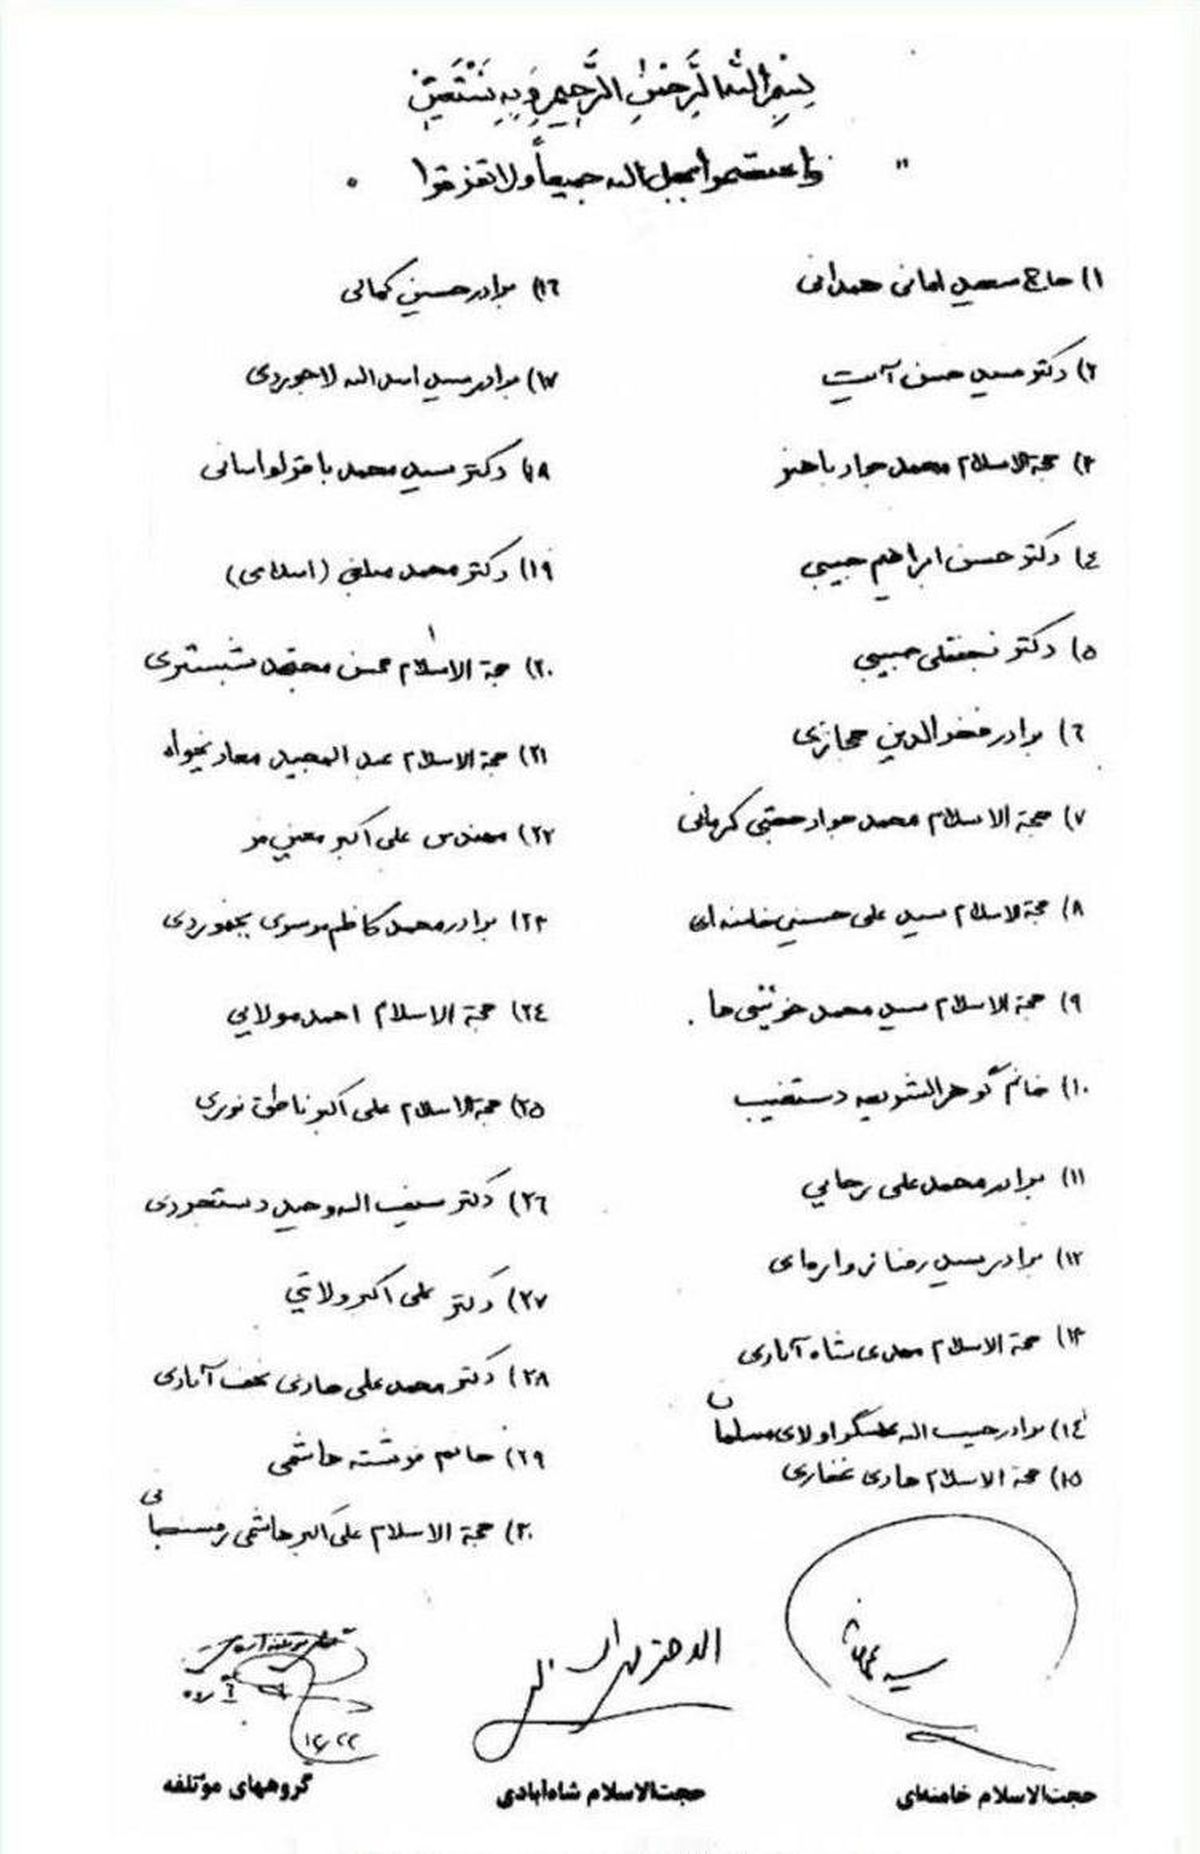 بِسْمِ اللهِ الرَّحْمٰنِ الرَّحِيمِ وَ بِهِ نَسْتَعِينُ
" واعتصموا بحبل الله جميعاً ولا تفرقوا "
۱) حاج سعید امانی همدانی
۲) دکتر سید حسن آیت
۳) حجة الاسلام محمد جواد باهنر
٤) دکتر حسن ابراهیم حبیبی
۵) دکتر نجفقلی حبیبی
٦) برادر فخرالدین حجازی
۷) حجة الاسلام محمد جواد حجتی کرمانی
۸) حجة الاسلام سید علی حسینی خامنه ای
۹) حجة الاسلام سید محمد خوئینی ها
۱۰) خانم گوهرالشریعه دستغیب
۱۱) برادر محمد علی رجایی
۱۲) برادر سید رضا زواره‌ای
۱۳) حجة الاسلام مهدی شاه آبادی
۱٤) برادر حبیب اله عسگر اولادی مسلمان
۱۵) حجة الاسلام هادی غفاری
۱٦) برادر حسین کمالی
۱۷) برادر سید اسد اله لاجوردی
۱۸) دکتر سید محمد باقر لواسانی
۱۹) دکتر محمد مبلغی (اسلامی)
۲۰) حجة الاسلام محسن مجتهد شبستری
۲۱) حجة الاسلام عبد المجید معادیخواه
۲۲) مهندس علی اکبر معین فر
۲۳) برادر محمد کاظم موسوی بجنوردی
۲٤) حجة الاسلام احمد مولایی
۲۵) حجة الاسلام علی اکبر ناطق نوری
۲٦) دکتر سیف اله وحید دستجردی
۲۷) دکتر علی اکبر ولایتی
۲۸) دکتر محمد علی هادی نجف آبادی
۲۹) خانم فرشته هاشمی
۳۰) حجة الاسلام علی اکبر هاشمی رفسنجانی
۱۲/۲۲
حجت‌الاسلام خامنه‌ای
حجت‌الاسلام شاه‌آبادی
گروههای مؤتلفه